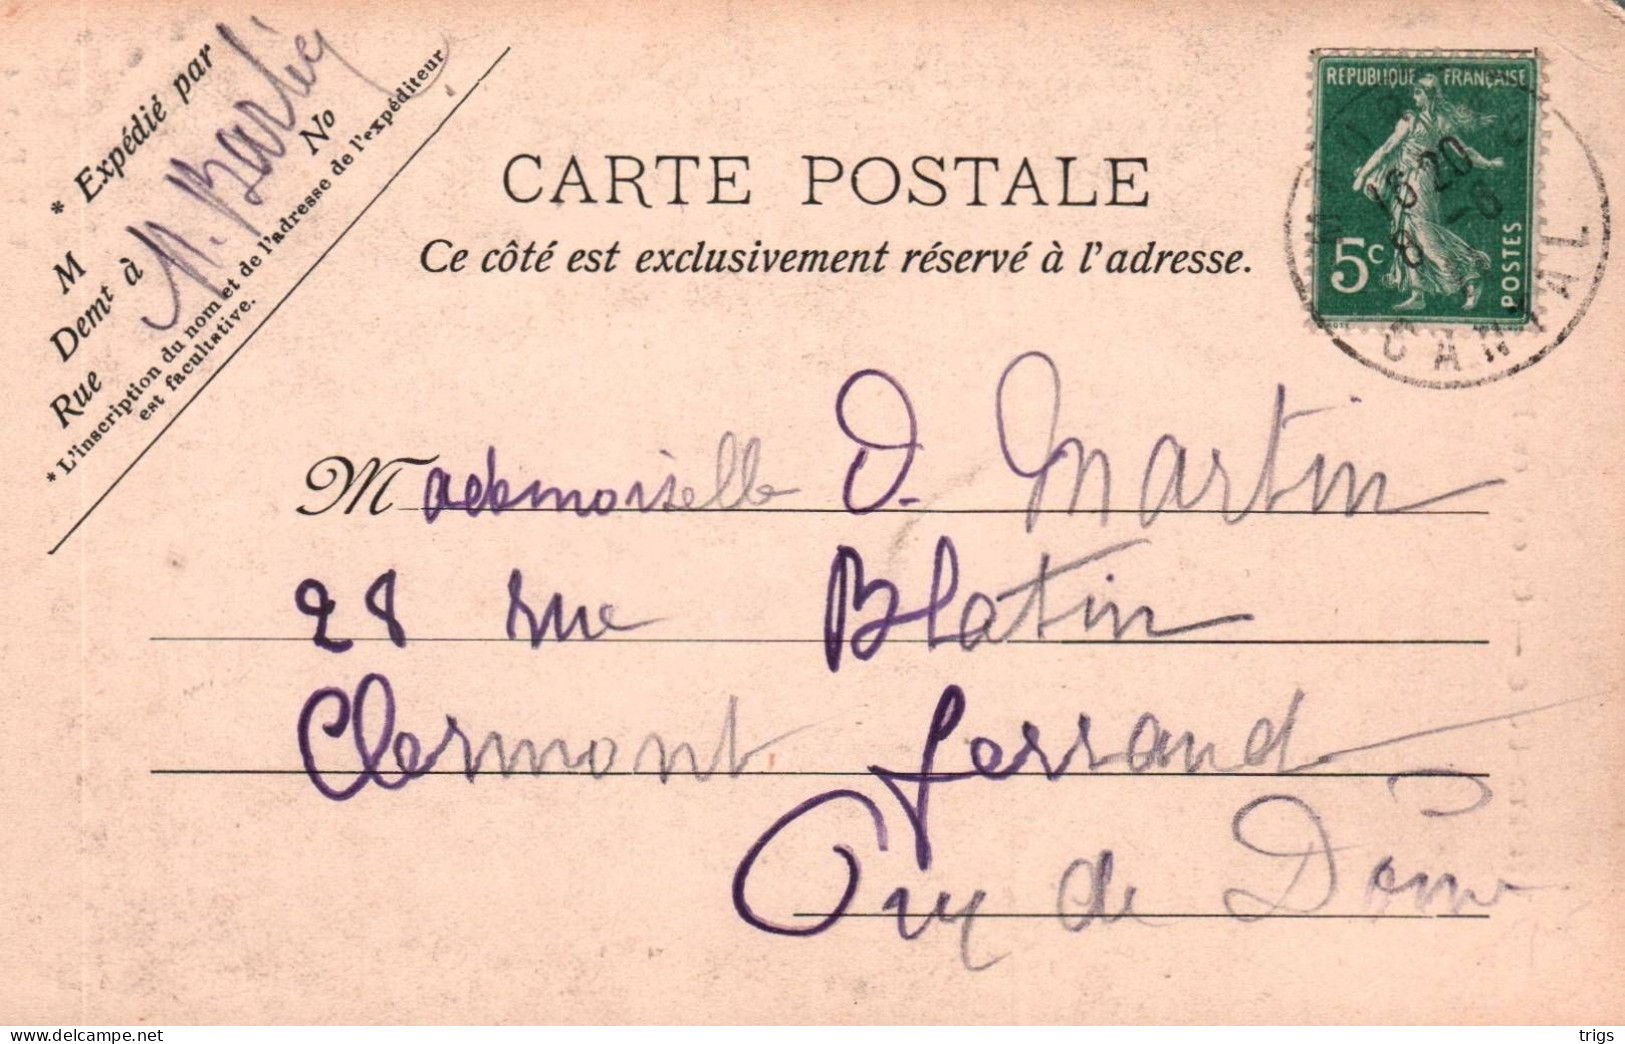 * Expédié par
M
Demt à
Rue No
* L'inscription du nom et de l'adresse de l'expéditeur
est facultative.
CARTE POSTALE
Ce côté est exclusivement réservé à l'adresse.
REPUBLIQUE FRANÇAISE
5c
POSTES
16 20
8 -8
CANTAL
Mademoiselle D. Martin
28 rue Blatin
Clermont ferrand
Puy de Dôme
delcampe.net
trigs